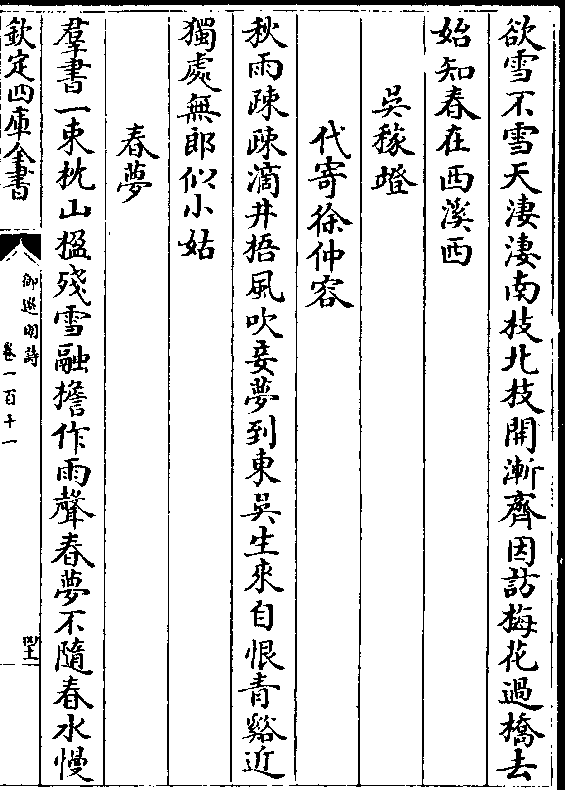 欲雪不雪天淒淒南枝北枝開漸齊因訪梅花過橋去
始知春在西溪西
吳稼竳
代寄徐仲容
秋雨疎疎滴井梧風吹妾夢到東吳生來自恨青谿近
獨處無郎似小姑
春夢
羣書一束枕山楹殘雪融擔作雨聲春夢不隨春水慢
欽定四庫全書
御選明詩
卷一百十一